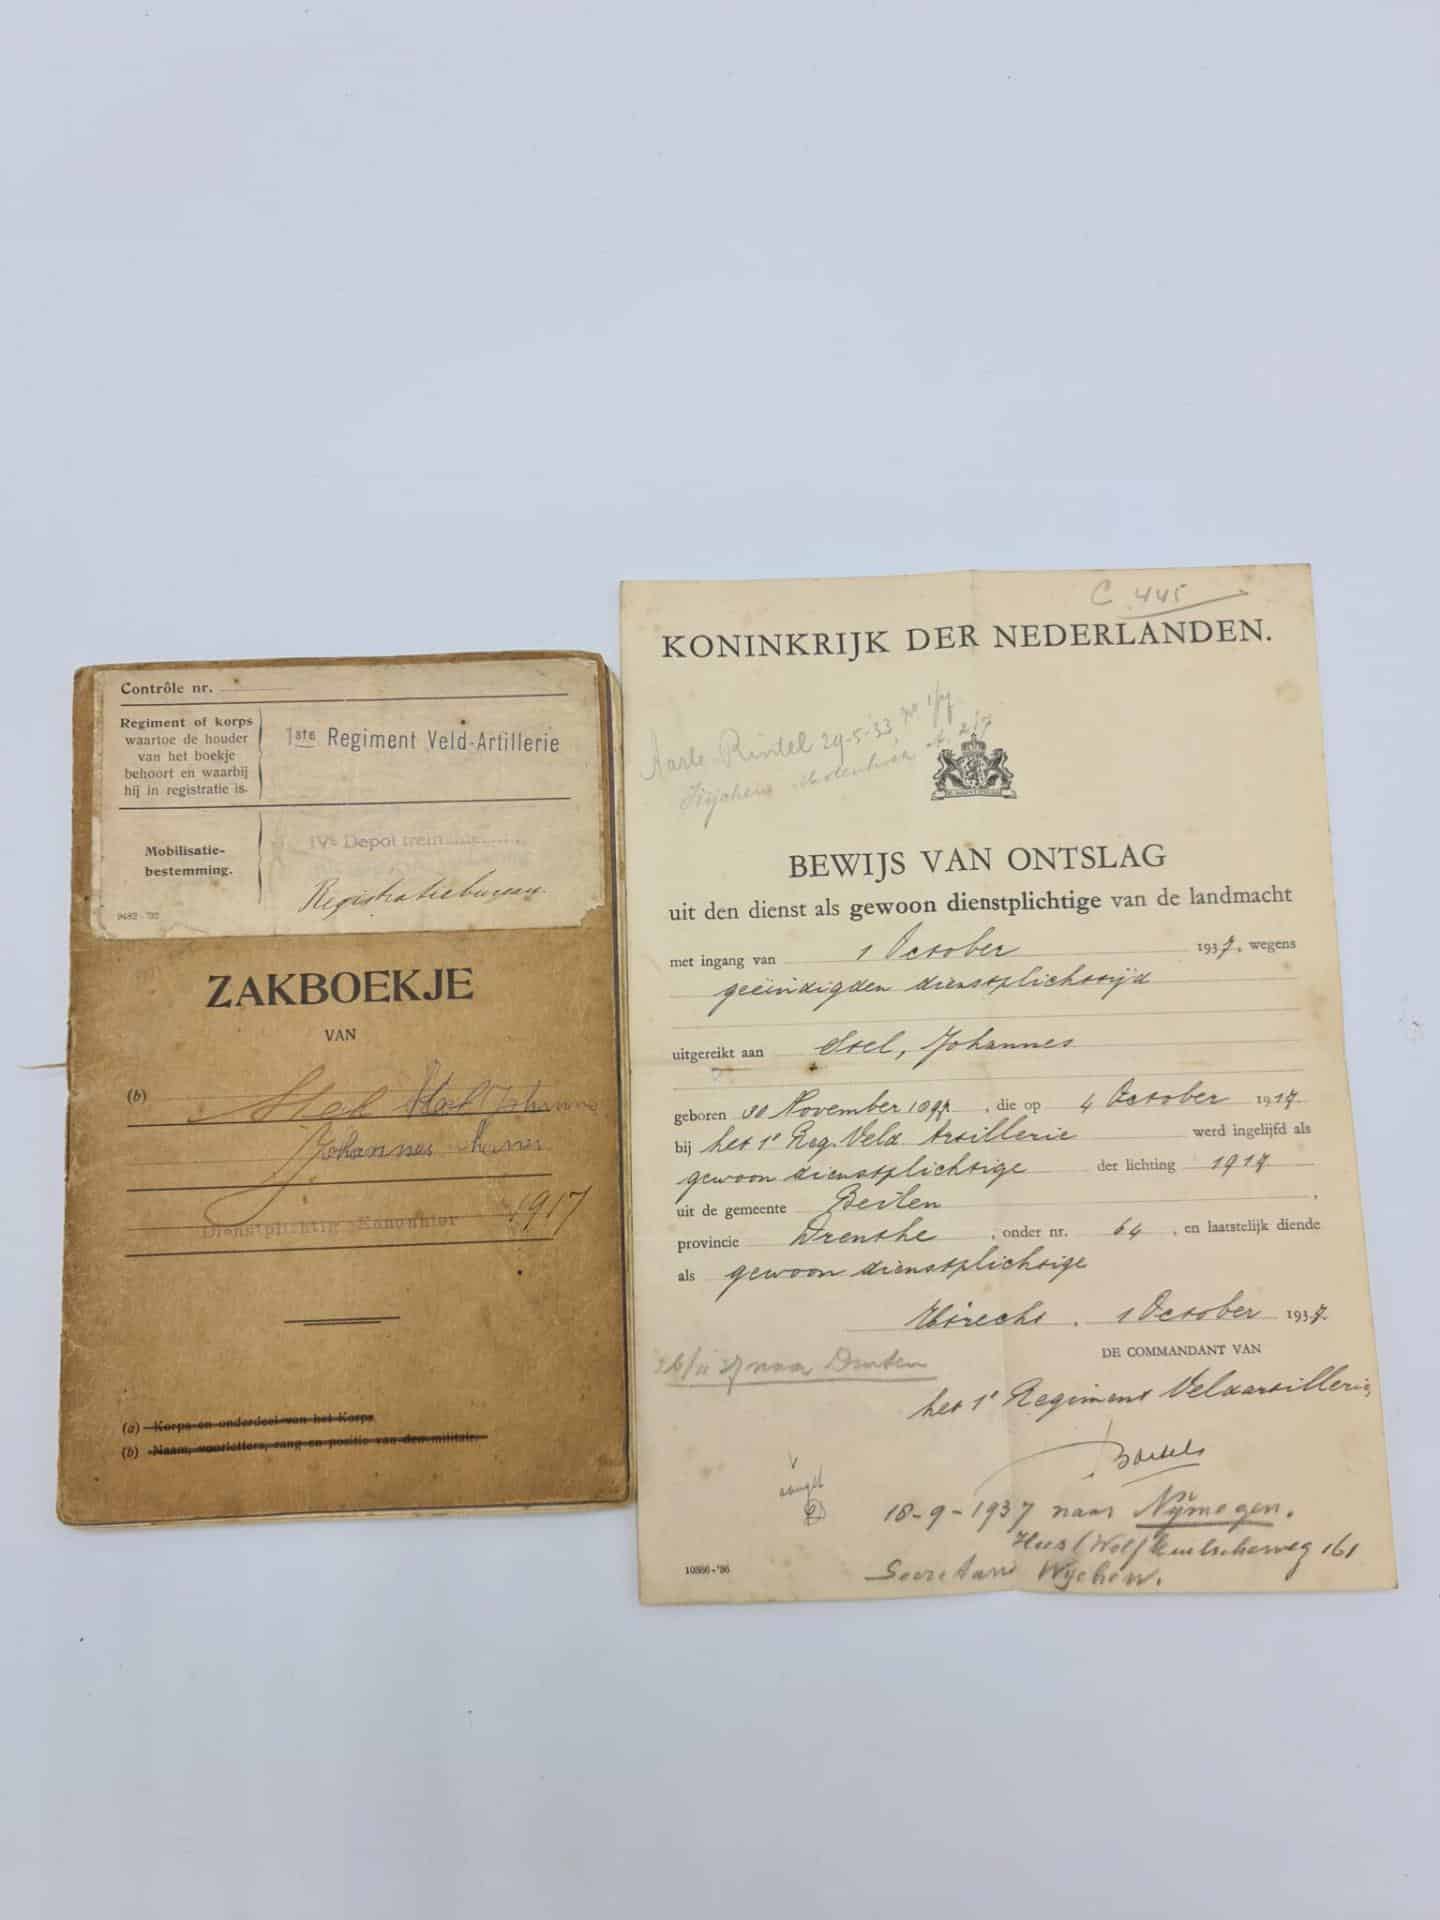 Contrôle nr.
Regiment of korps
waartoe de houder
van het boekje
behoort en waarbij
hij in registratie is.
1ste Regiment Veld-Artillerie
Mobilisatie-
bestemming.
IVe Depot
Registratiebureau.
9482-'32
ZAKBOEKJE
VAN
(b) Stel Johannes
Johannes
Dienstplichtig Kanonnier 1917
(a) Korps en onderdeel van het Korps
(b) Naam, voorletters, rang en positie van den militair.
C 445
KONINKRIJK DER NEDERLANDEN.
Aarle-Rixtel 29-5-33,
BEWIJS VAN ONTSLAG
uit den dienst als gewoon dienstplichtige van de landmacht
met ingang van 1 October 1937, wegens
geëindigden dienstplichttijd
uitgereikt aan Stel, Johannes
geboren 30 November 1897, die op 4 October 1917
bij het 1e Reg. Veld Artillerie werd ingelijfd als
gewoon dienstplichtige der lichting 1917
uit de gemeente Beilen,
provincie Drenthe, onder nr. 64, en laatstelijk diende
als gewoon dienstplichtige
Utrecht, 1 October 1937.
DE COMMANDANT VAN
het 1e Regiment Veldartillerie,
naar Druten
18-9-1937 naar Nijmegen.
161
Secretarie Wychen.
10566-'36